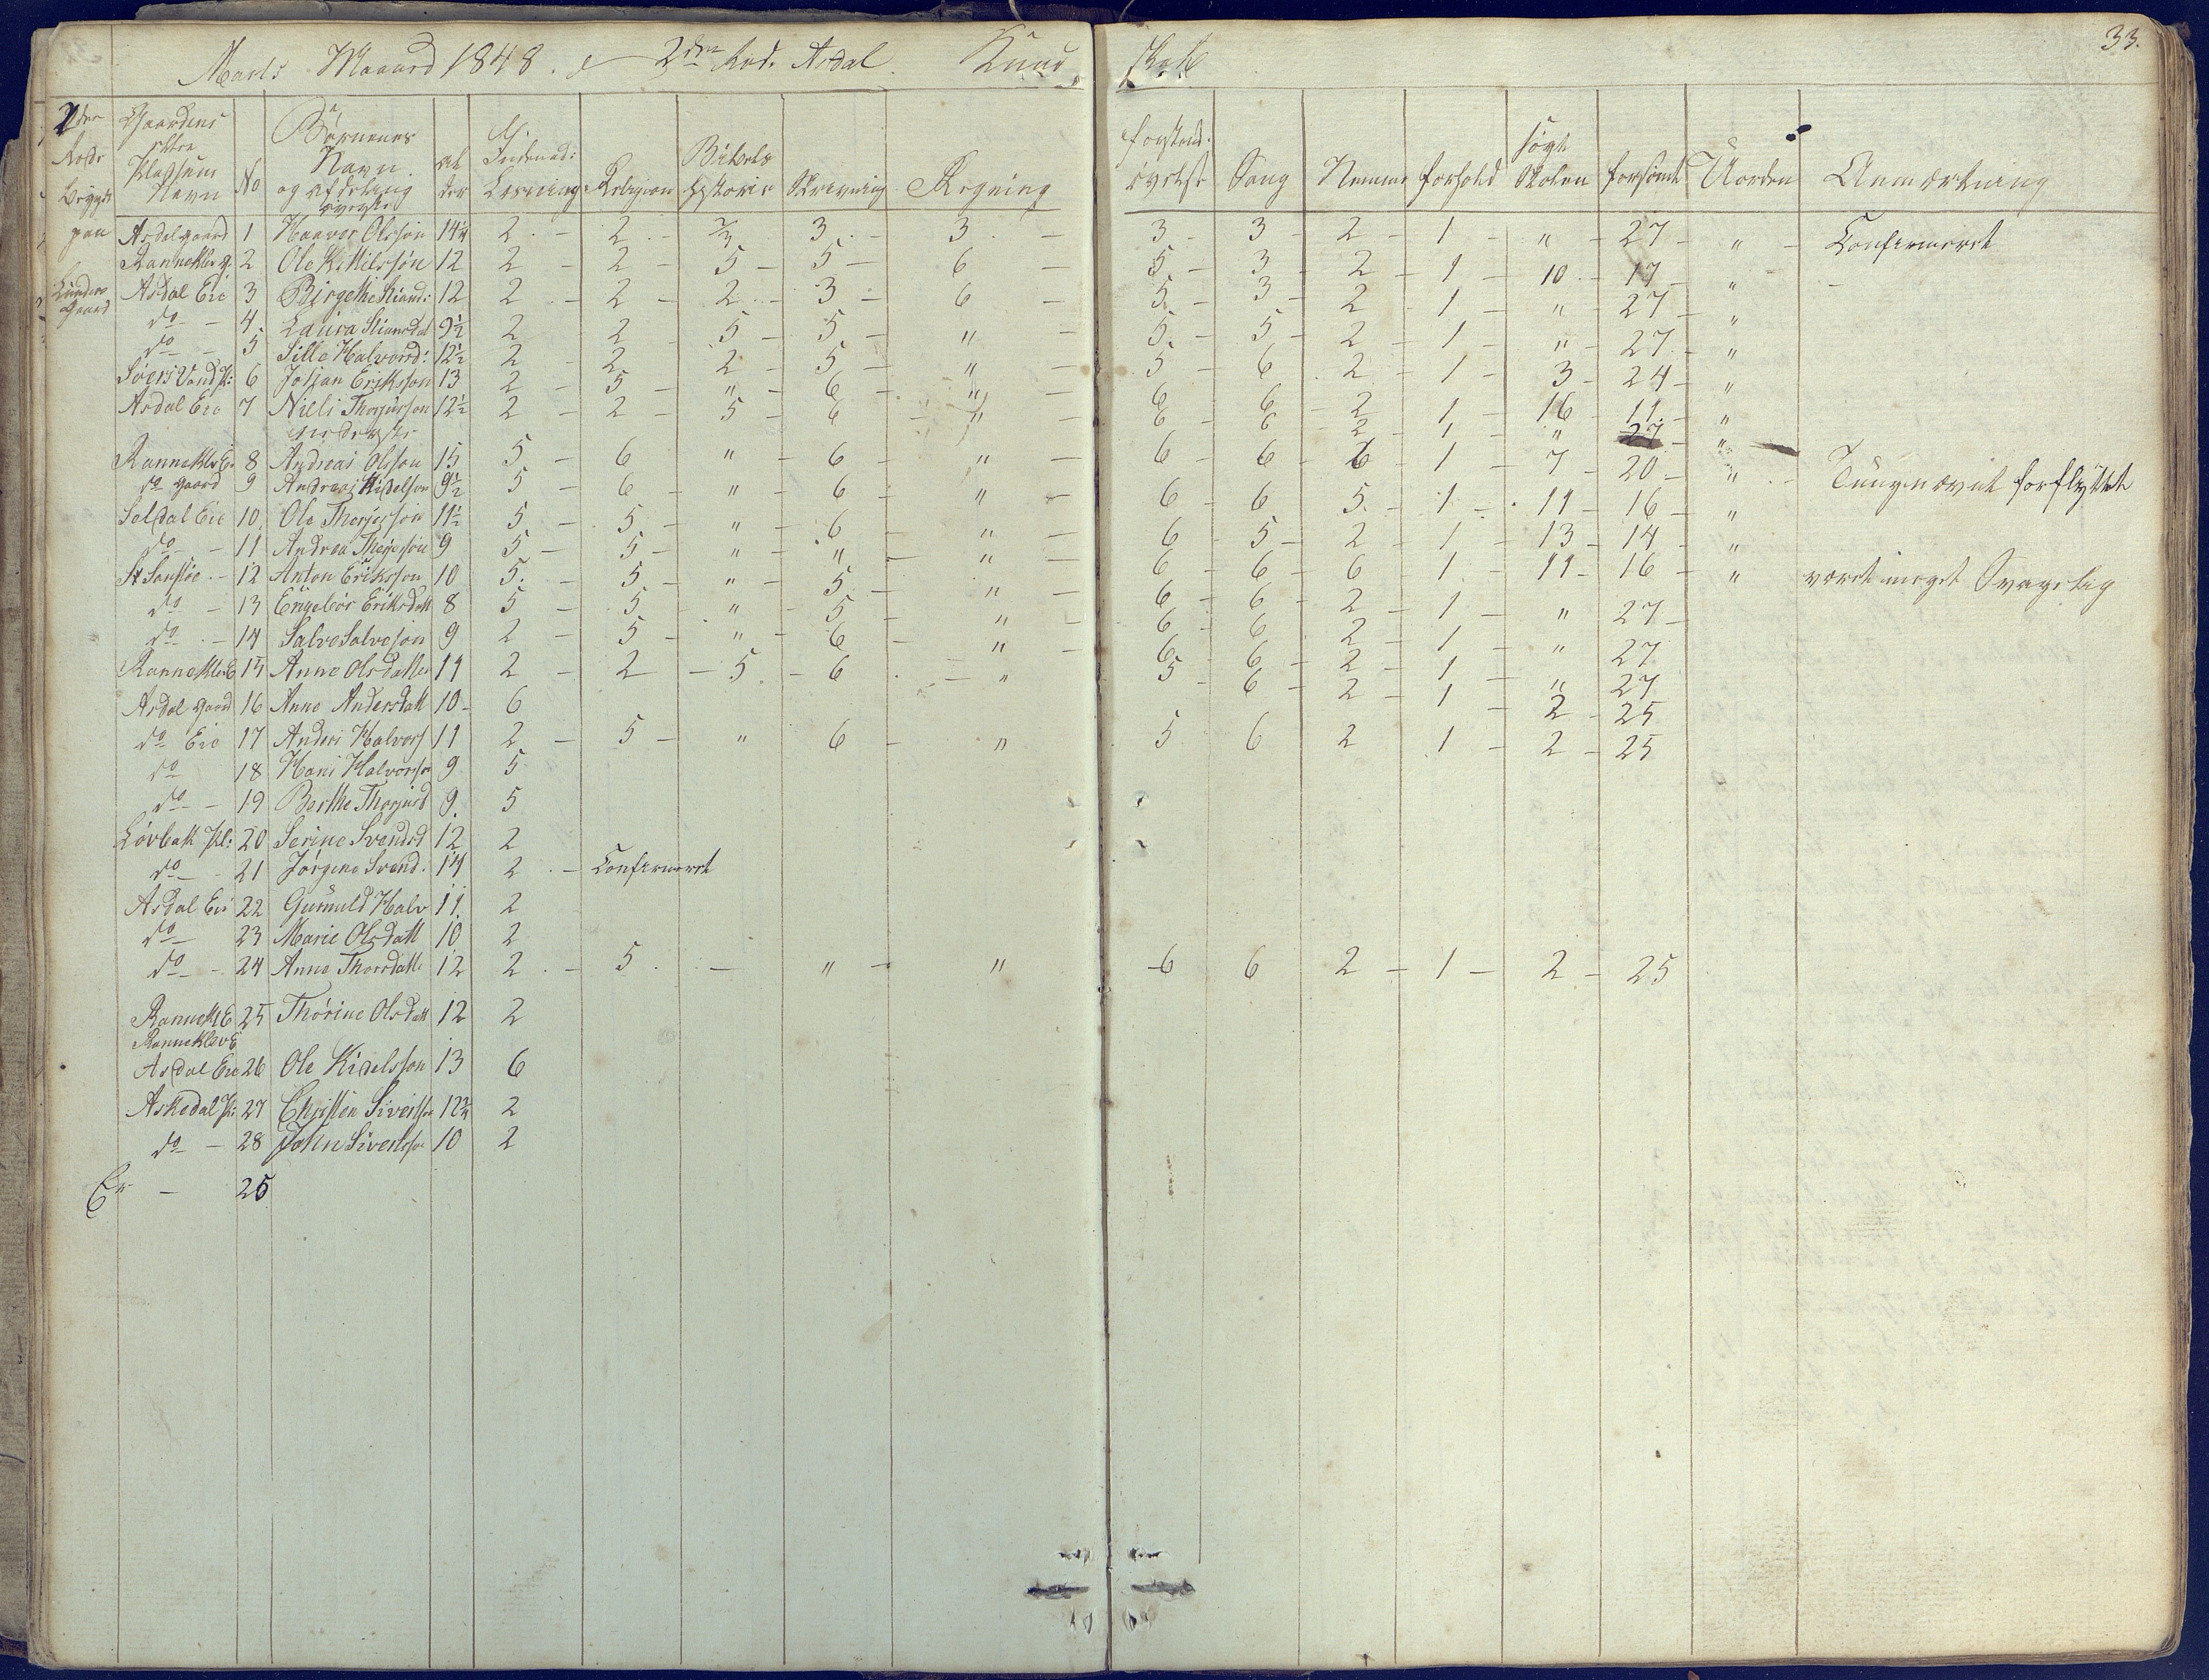 33.
Marts Maaned 1848. 2den Rode Asdal.
2den Rode begyndt paa Lunden Gaard
Gaardens eller Pladsens Navn | No | Børnenes Navn og Afdeling øverste | Alder | Indenad: Læsning | Religion | Bibels historie | Skrivning | Regning | forstand: øvelse | Sang | Nemme | forhold | søgt Skolen | forsømt | Uorden | Anmærkning
Asdal gaard 1 Haaver Olsson 14¼ 2 - 2 - 2/3 3 - 3 - 3 - 3 - 2 - 1 - " - 27 - " - Confirmeret
Ranneklev g. 2 Ole Kittilssøn 12 2 - 2 - 5 - 5 - 6 - 5 - 3 - 2 - 1 - 10 - 17 - " -
Asdal Eie 3 Birgethe Stiand: 12 2 - 2 - 2 - 3 - 6 - 5 - 3 - 2 - 1 - " - 27 - "
do - 4 Laura Stiansdat 9½ 2 2 5 - 5 - " - 5 - 5 - 2 - 1 - " - 27 - "
do - 5 Sille Halvorsd: 12½ 2 - 2 2 - 5 - " - 5 - 6 - 2 - 1 - 3 - 24 - "
Søers Vand Pl: 6 Johan Eriksson 13 2 - 5 - " - 6 - " - 6 - 6 - 2 - 1 - 16 - 11 - "
Asdal Eie 7 Niels Thorjusson 12½ 2 - 2 - 5 - 6 - " - 6 - 6 - 2 - 1 - " - 27 - "
nederste
Ranneklev Ei 8 Andreas Olsson 15 5 - 6 " - 6 - " - 6 - 6 - 6 - 1 - 7 - 20 - " -
do gaard 9 Andreas Kidelson 9½ 5 - 6 - " - 6 - " - 6 - 6 - 5 - 1 - 11 - 16 - " forflyttet
Seldal Eie 10 Ole Therjesson 11½ 5 - 5 - " - 6 - " - 6 - 5 - 2 - 1 - 13 - 14 - "
do - 11 Andrea Therjeson 9 5 - 5 - " - " - " - 6 - 6 - 6 - 1 - 11 - 16 - " været meget Svagelig
St Sensløe - 12 Anton Eriksson 10 5 - 5 - " - 5 - " - 6 - 6 - 2 - 1 - " 27 -
do - 13 Engebor Eriksdatt 8 5 - 5 - " - 5 - " - 6 - 6 2 - 1 - " 27
do - 14 Salve Salveson 9 2 - 5 - " - 6 - " - 6 - 6 - 2 - 1 - " 27
Ranneklev E 15 Anne Olsdatter 11 2 - 2 - 5 - 6 - " 5 6 - 2 - 1 - 2 - 25
Asdal gaard 16 Anne Andersdatt 10 - 6
do Eie 17 Anders Halvors 11 2 - 5 - " 6 - " 5 6 2 1 - 2 - 25
do 18 Hans Halvorsson 9 5
do - 19 Berthe Thorjusd 9 5
Løvbakk Pl: 20 Serine Svendsd 12 2
do - 21 Jørgene Svend. 14 2 - Confirmeret
Asdal Eie 22 Gunnuld Halv 11 2
do 23 Marie Olsdatt 10 2
do - 24 Anne Thorsdatte 12 2 - 5 - " - " 6 6 2 - 1 - 2 - 25
Rannekl E 25 Thorine Olsdatt 12 2
Ranneklev E
Asdal Eie 26 Ole Kidelsson 13 6
Askedal Pl: 27 Christen Siversson 12¾ 2
do - 28 John Siversson 10 2
Er - 25